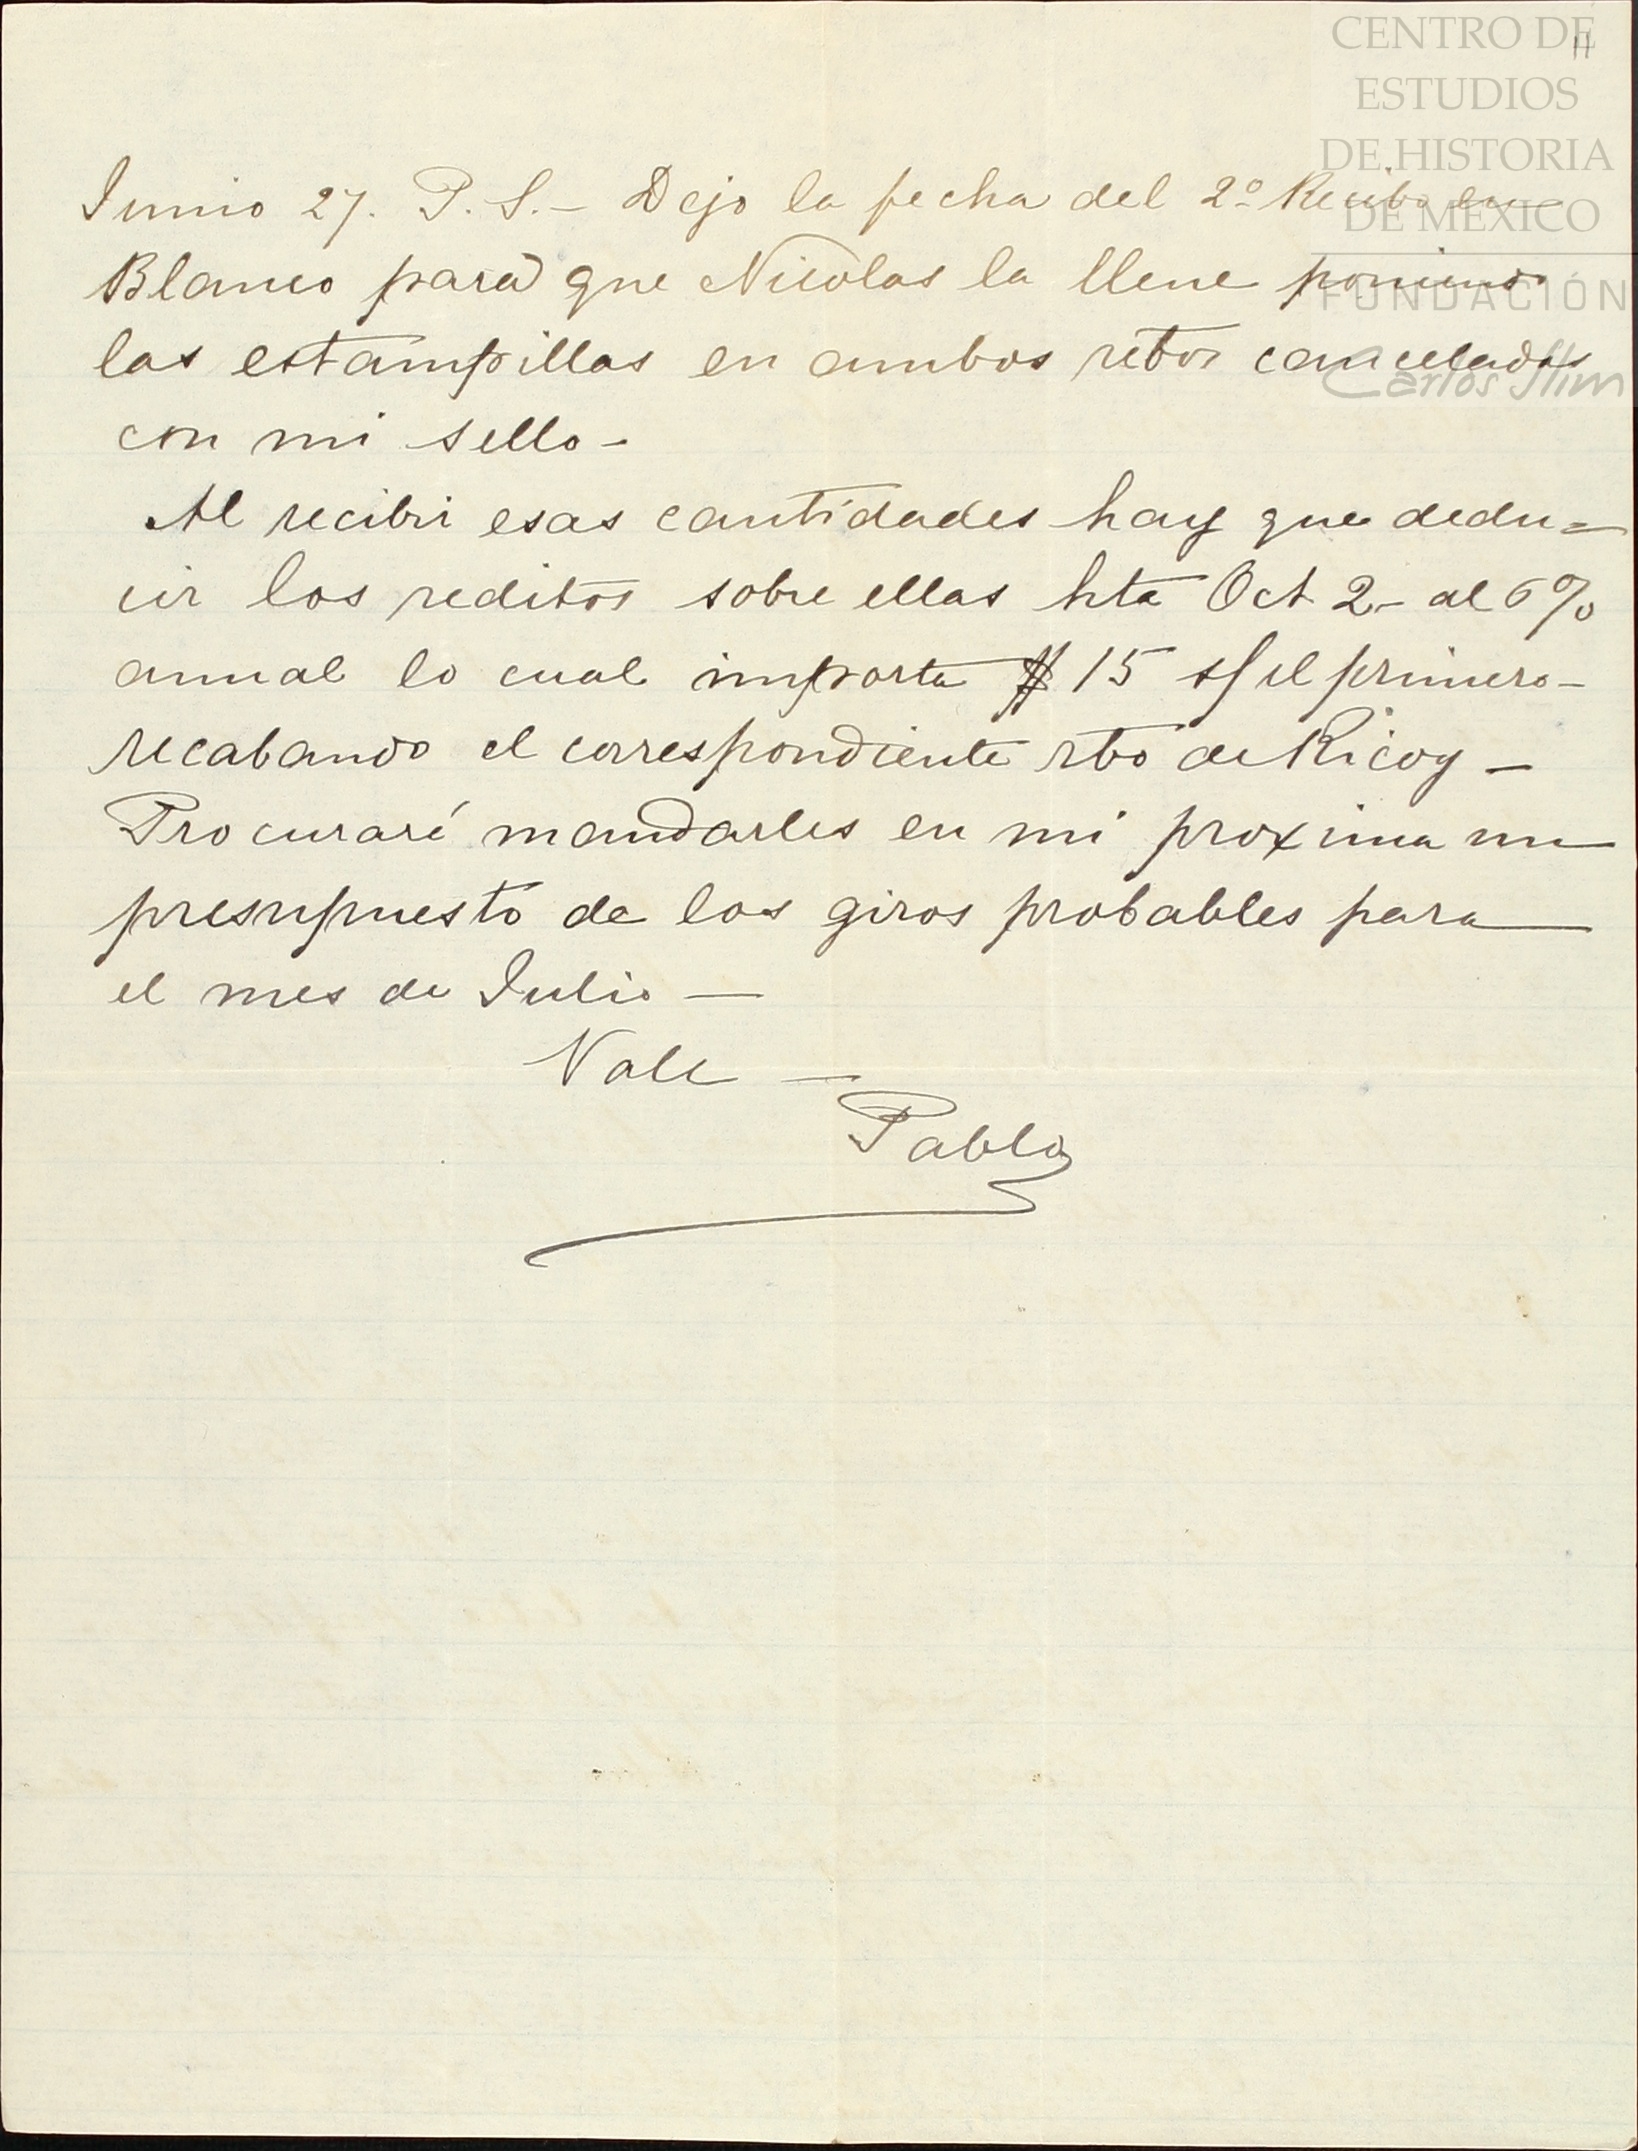 CENTRO DE
ESTUDIOS
DE HISTORIA
DE MÉXICO
FUNDACIÓN
Carlos Slim
11
Junio 27. P. S. – Dejo la fecha del 2º Recibo en
Blanco para que Nicolas la llene poniend
las estampillas en ambos rebos canceladas
con mi sello –
Al recibir esas cantidades hay que dedu=
cir los reditos sobre ellas hta Oct 2 – al 6%
anual lo cual importa $ 15 s/ el primero –
recabando el correspondiente rbo de Ricoy –
Procuraré mandarles en mi proxima un
presupuesto de los giros probables para
el mes de Julio –
Vale –
Pablo